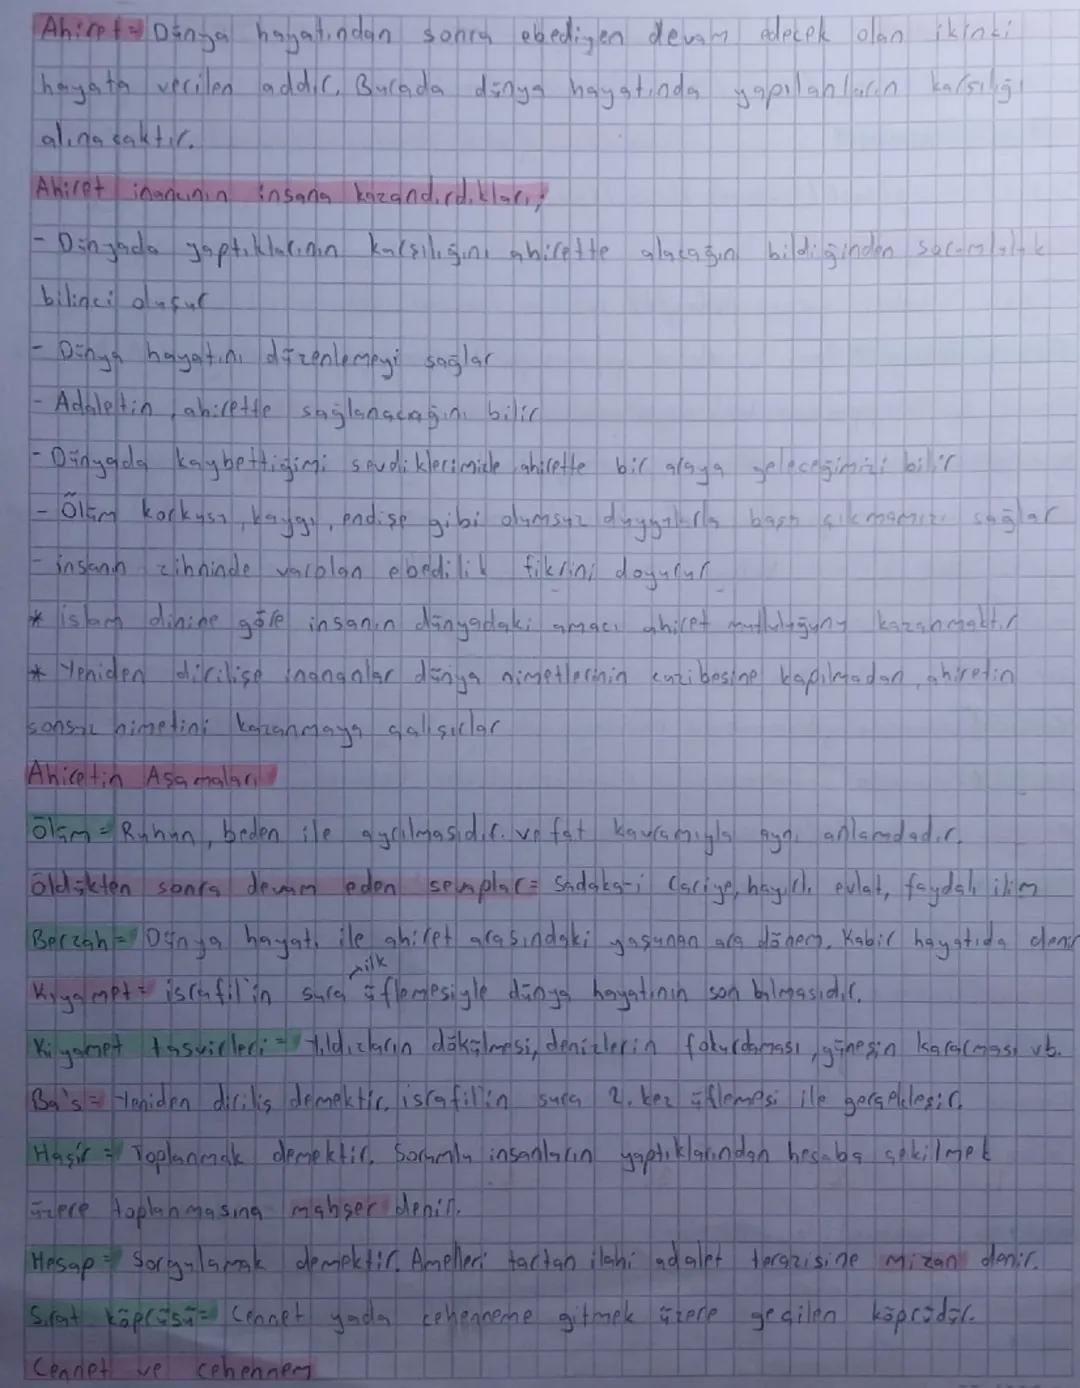 Ahiret= Dünya hayatından sonra ebediyen devam edecek olan ikinci
hayata verilen addır. Burada dünya hayatında yapılanların karşılığı
alınacaktır.
Ahiret inancının insana kazandırdıkları;
- Dünyada yaptıklarının karşılığını ahirette alacağını bildiğinden sorumluluk
bilinci oluşur
- Dünya hayatını düzenlemeyi sağlar
- Adaletin ahirette sağlanacağını bilir
- Dünyada kaybettiğimi sevdiklerimizle ahirette bir araya geleceğimizi bilir
- Ölüm korkusu, kaygı, endişe gibi olumsuz duygularla başa çıkmamızı sağlar
- insanın zihninde varolan ebedilik fikrini doyurur
* islam dinine göre insanın dünyadaki amacı ahiret mutluluğunu kazanmaktır
* Yeniden dirilişe inananlar dünya nimetlerinin cazibesine kapılmadan ahiretin
sonsuz nimetini kazanmaya çalışırlar
Ahiretin Aşamaları
Ölüm= Ruhun, beden ile ayrılmasıdır. vefat kavramıyla aynı anlamdadır.
Öldükten sonra devam eden sevaplar= Sadaka-i Cariye, hayırlı evlat, faydalı ilim
Berzah= Dünya hayatı ile ahiret arasındaki yaşanan ara dönem. Kabir hayatıda denir
Kıyamet= israfil'in sura ilk üflemesiyle dünya hayatının son bulmasıdır.
Kıyamet tasvirleri= Yıldızların dökülmesi, denizlerin fokurdaması, güneşin kararması vb.
Ba's= Yeniden diriliş demektir. israfil'in sura 2. kez üflemesi ile gerçekleşir.
Haşir= Toplanmak demektir. Sorumlu insanların yaptıklarından hesaba çekilmek
üzere toplanmasına mahşer denir.
Hesap= Sorgulamak demektir. Amelleri tartan ilahi adalet terazisine mizan denir.
Sırat köprüsü= Cennet yada cehenneme gitmek üzere geçilen köprüdür.
Cennet ve cehennem